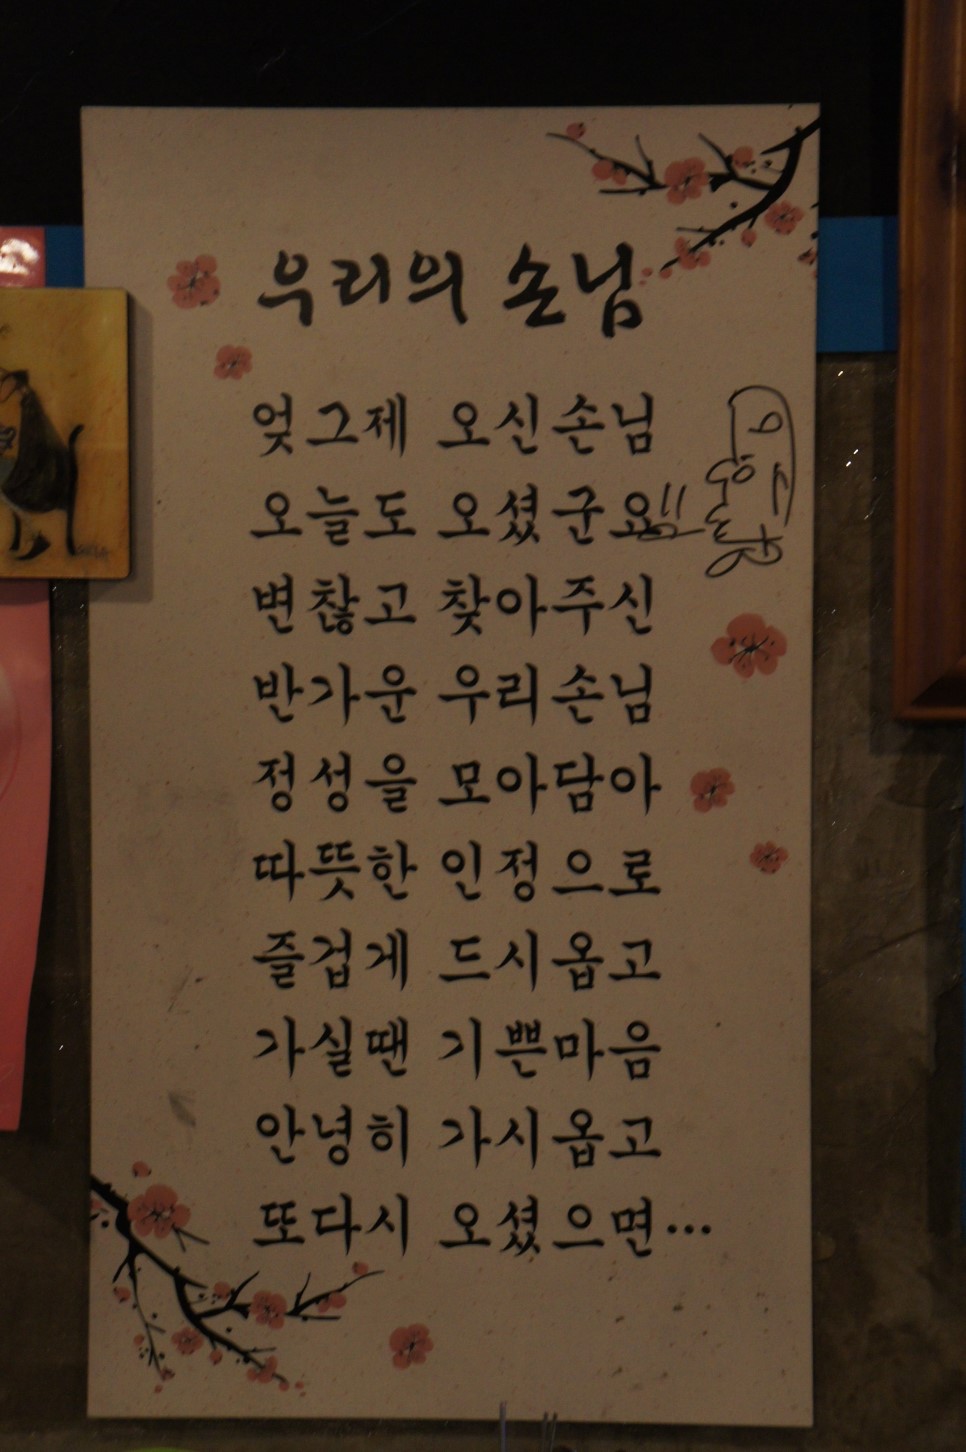 우리의 손님
엊그제 오신손님
오늘도 오셨군요
변찮고 찾아주신
반가운 우리손님
정성을 모아담아
따뜻한 인정으로
즐겁게 드시옵고
가실땐 기쁜마음
안녕히 가시옵고
또다시 오셨으면···